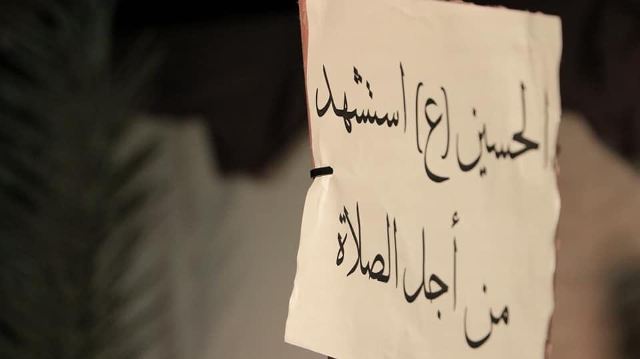 الحسين (ع) استشهد
من أجل الصلاة